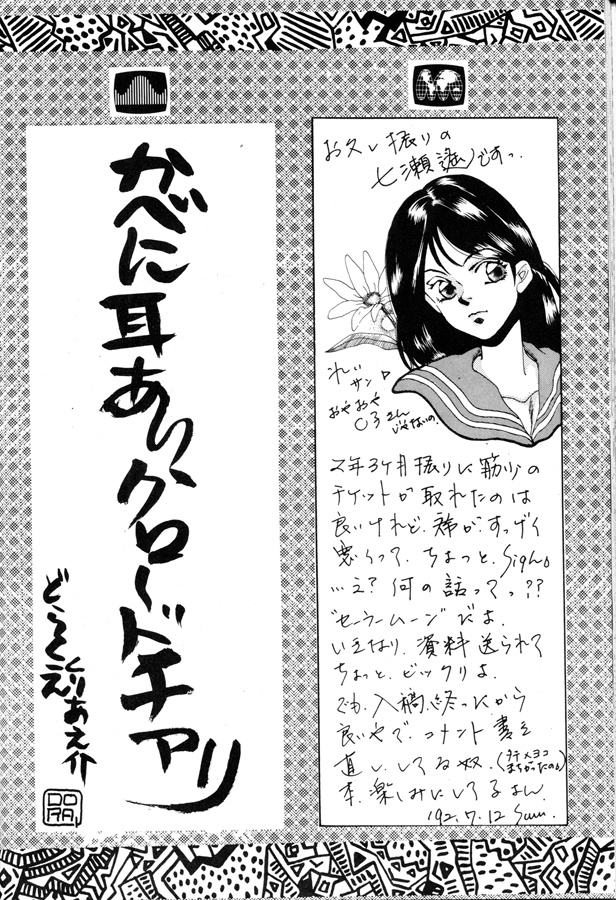 お久し振りの
七瀬遥ですっ。
れい
サン♪
おやおや
○3さん
じゃないの。
2年3ヶ月振りに筋少の
チケットが取れたのは
良いけれど、席がすっげく
悪くって、ちょっと、Sigh。
…え?何の話ってっ??
"セーラームーン"だよ。
いきなり、資料送られて
ちょっと、ビックリよ。
でも、入稿終ったから
良いやで、コメント書き
直ししてる奴。(タテ×ヨコまちがったのよ)
本、楽しみにしてるよん。
'92.7.12
かべに耳あり、クロードチアリ
どらくえ
くりあえ介